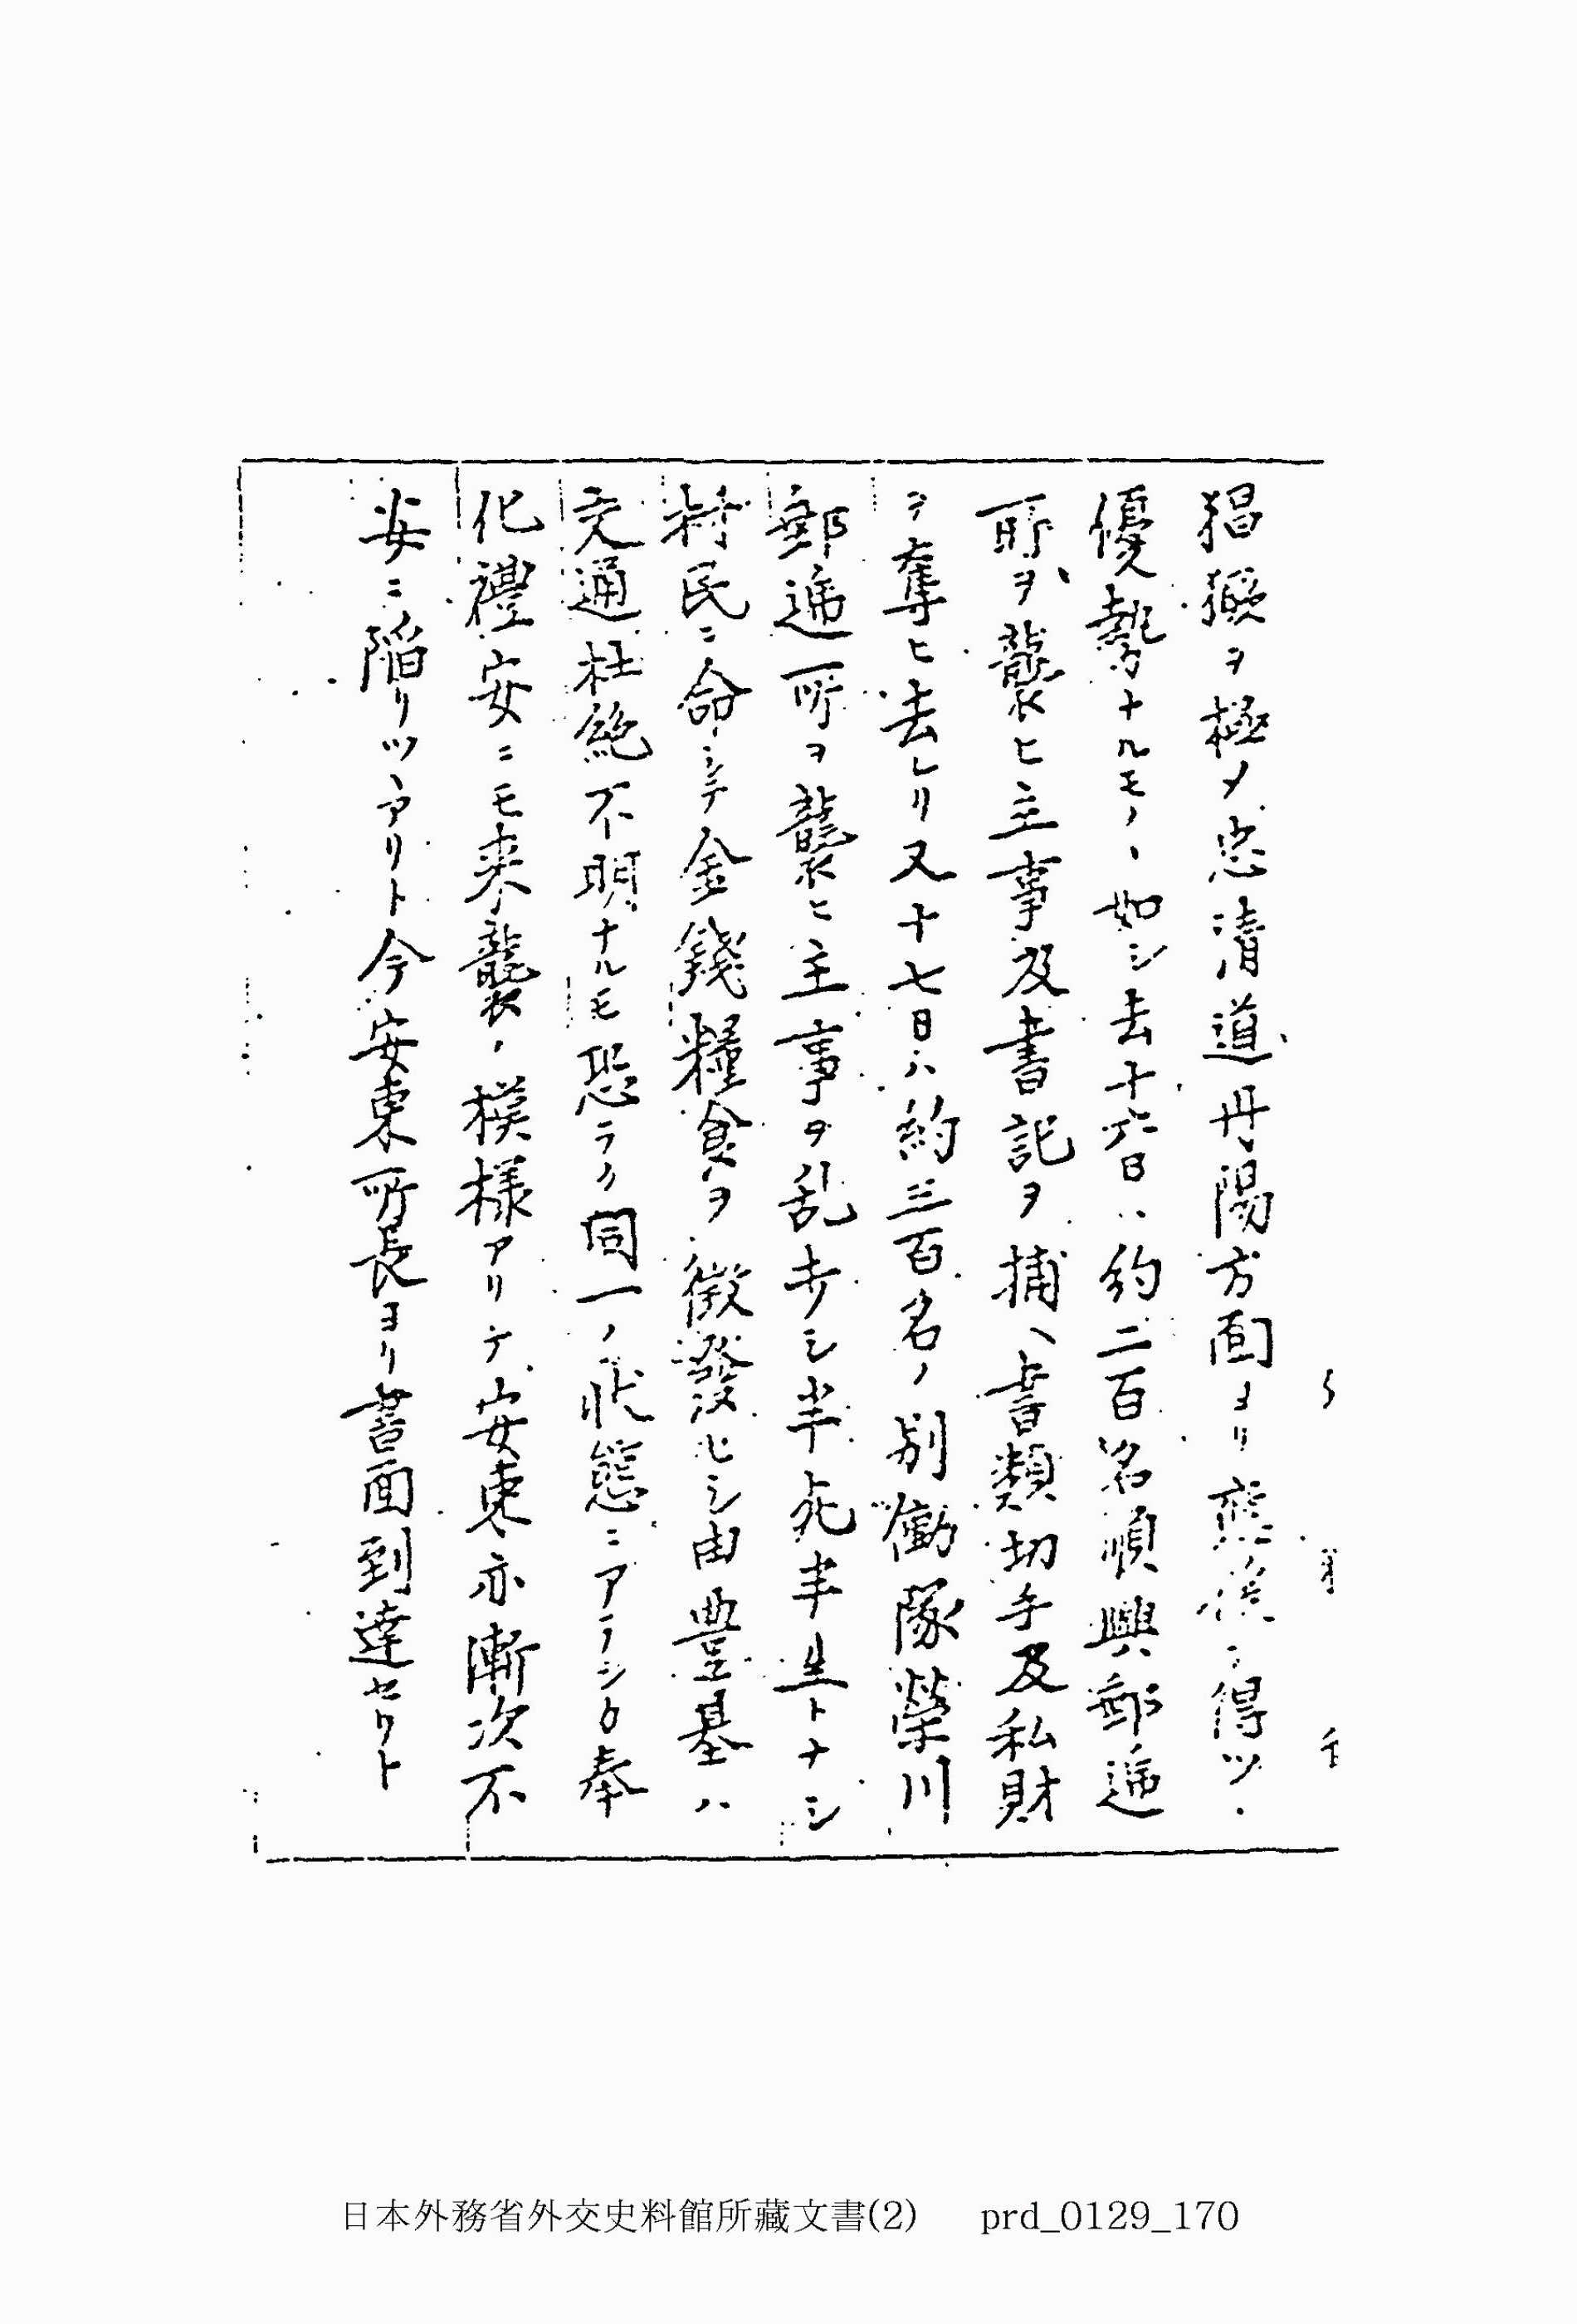 猖獗ヲ極メ忠清道丹陽方面ヨリ應援ヲ得ツヽ
優勢ナルモノヽ如シ去十六日ハ約二百名順興郵逓
所ヲ襲ヒ主事及書記ヲ捕ヘ書類切手及私財
ヲ奪ヒ去レリ又十七日ハ約三百名ノ別働隊榮川
郵逓所ヲ襲ヒ主事ヲ乱打シ半死半生トナシ
村民ニ命シテ金錢糧食ヲ徴發セシ由豊基ハ
交通杜絶不明ナルモ恐ラク同一ノ状態ニアラン乎奉
化禮安ニモ来襲ノ模様アリテ安東亦漸次不
安ニ陥リツヽアリト今安東所長ヨリ書面到達セリト
日本外務省外交史料館所藏文書(2) prd_0129_170